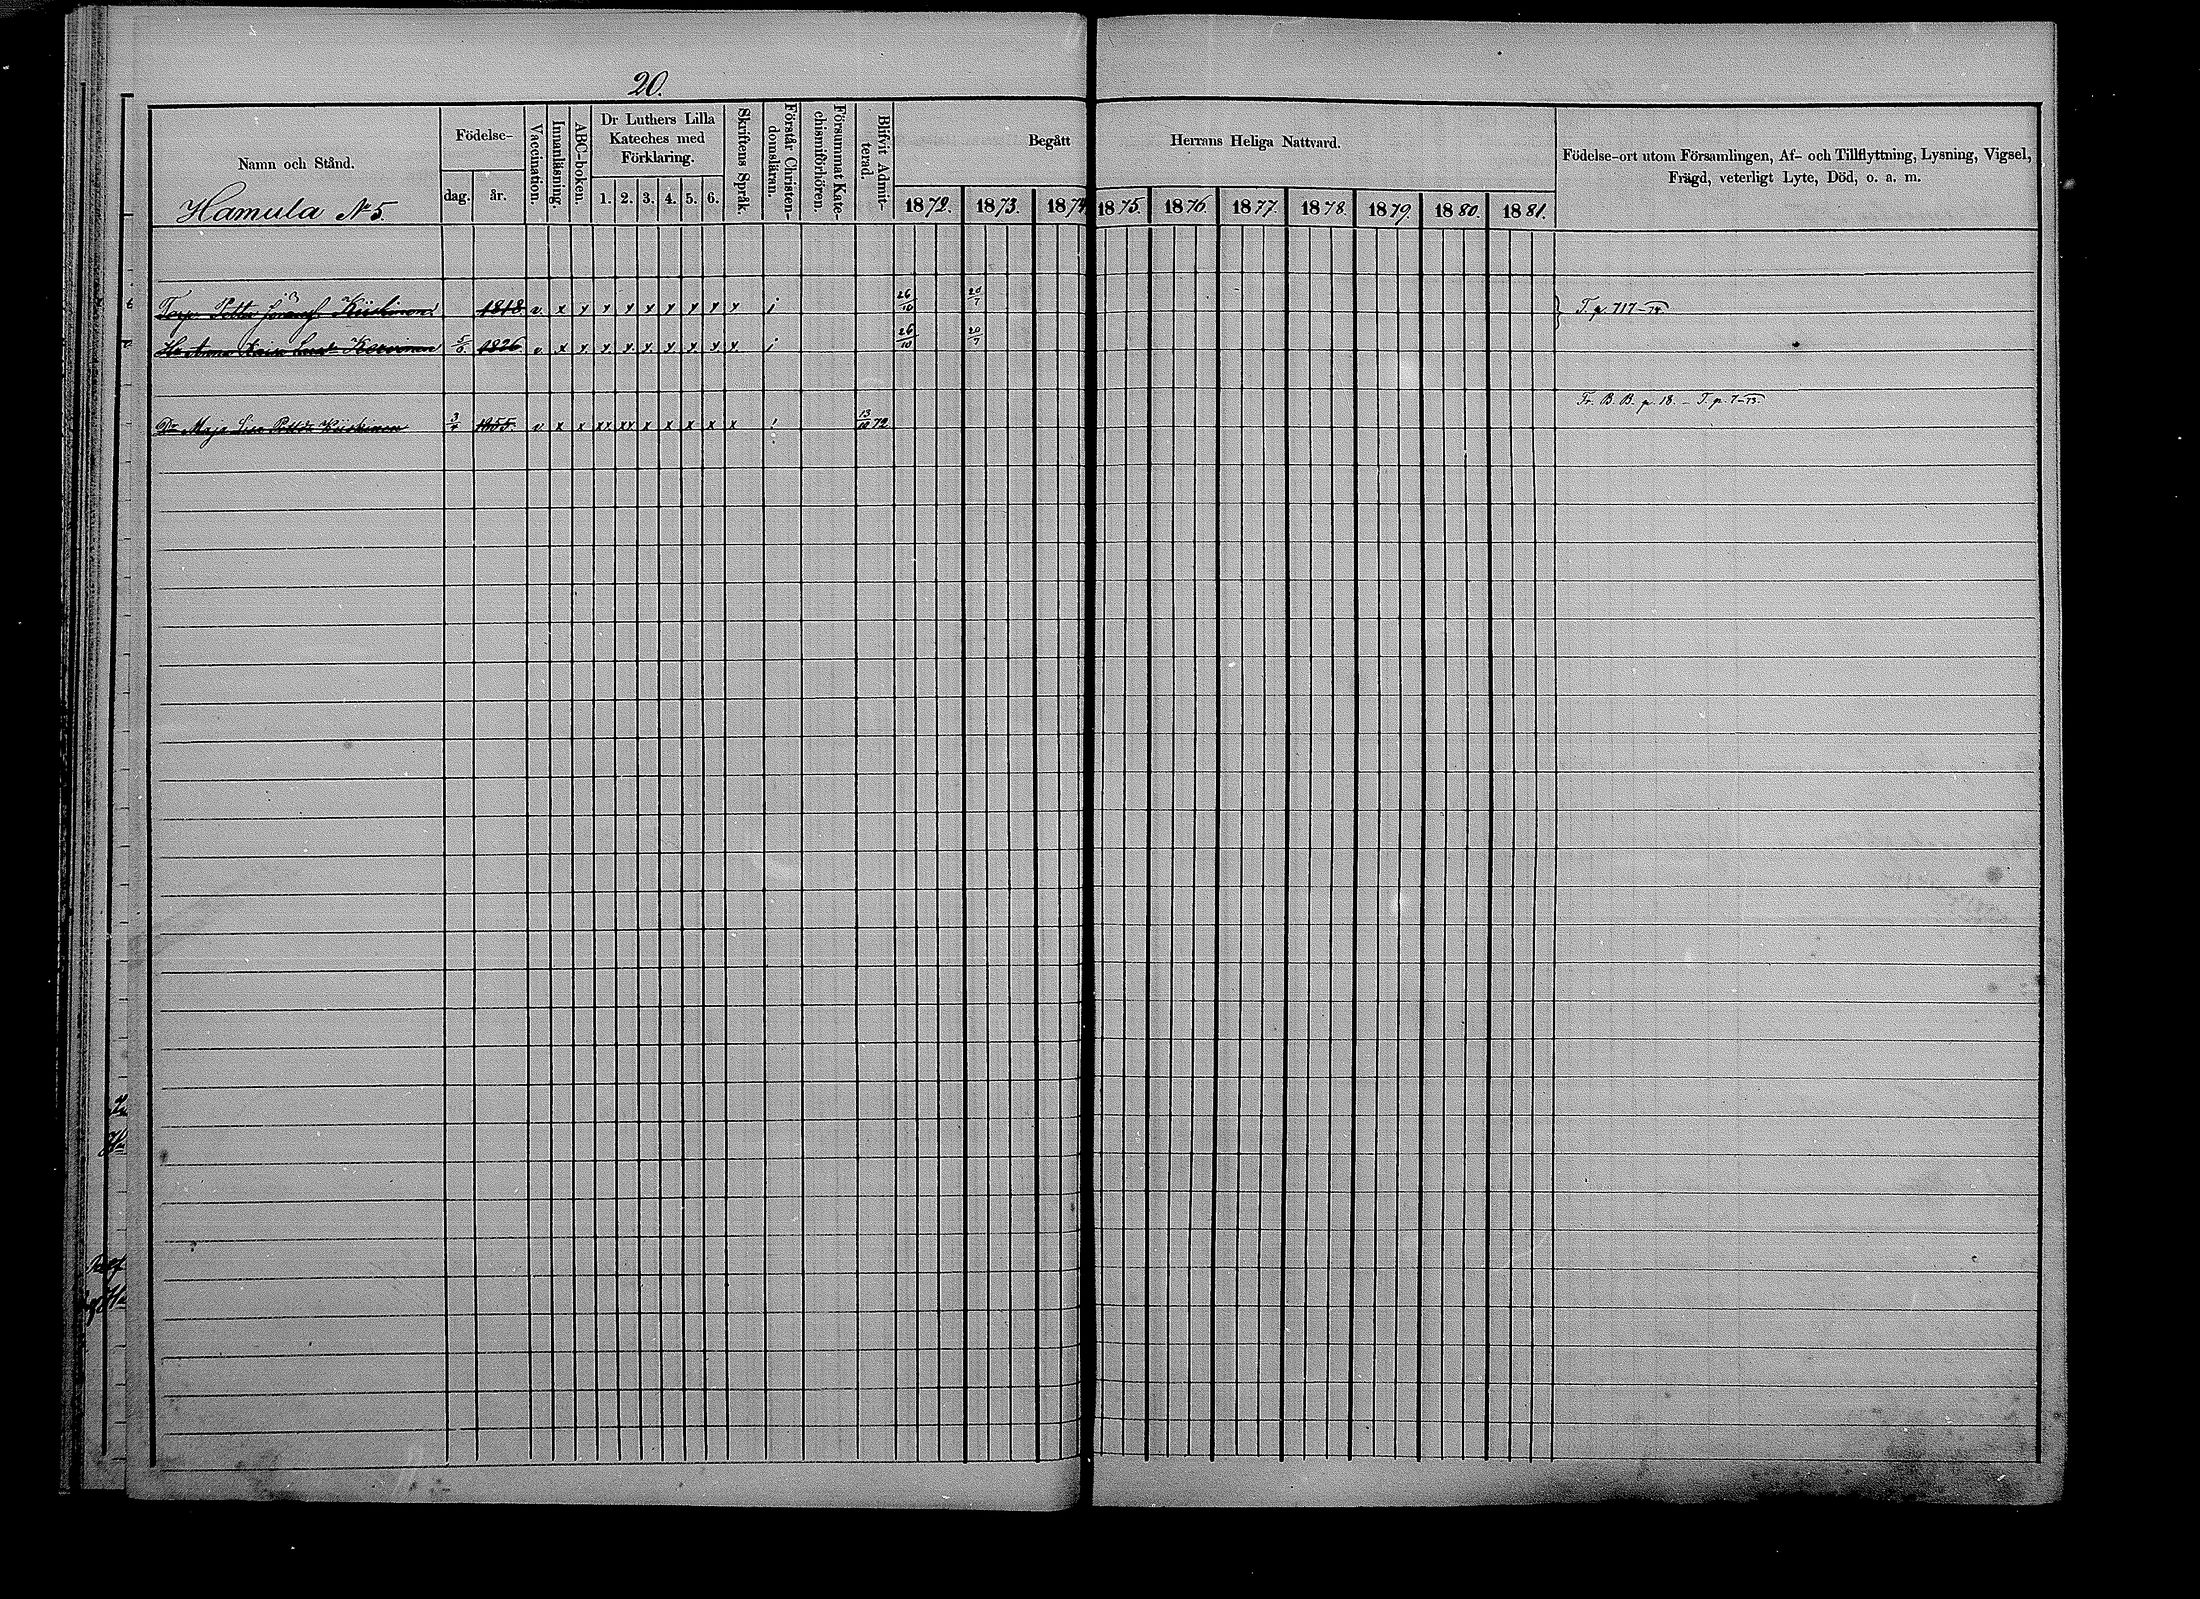 20.
Namn och Stånd.
Hamula № 5.
Födelse-
dag.
år.
Vaccination.
Innanläsning.
ABC-boken.
Dr Luthers Lilla
Kateches med
Förklaring.
1. 2. 3. 4. 5. 6.
Skriftens Språk.
Förstår Christen-
domsläran.
Försummat Kate-
chismiförhören.
Blifvit Admit-
terad.
Begått Herrans Heliga Nattvard.
1872. 1873. 1874 1875. 1876. 1877. 1878. 1879. 1880. 1881.
Födelse-ort utom Församlingen, Af- och Tillflyttning, Lysning, Vigsel,
Frägd, veterligt Lyte, Död, o. a. m.
Torp. Petter Kiiskinen 1818 v. x y y y y y y y y i 26/10 20/7 T. p. 717-74
Hu Anna Kaisa 1826 v. x y y y y y y y y i 26/10 20/7
Dr Maja Lisa Kiiskinen 3/4 1855. v x x xx xx x x x x x 13/10 72 Fr. B. B. p. 18. - T. p. 7-73.